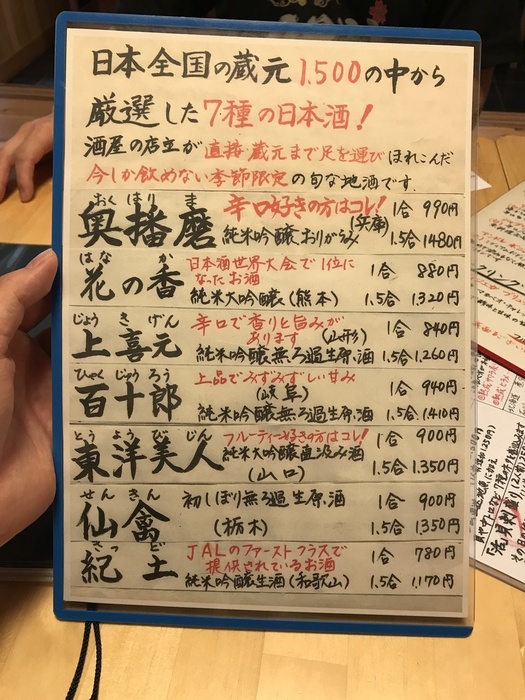 日本全国の蔵元1,500の中から
厳選した7種の日本酒!
酒屋の店主が直接蔵元まで足を運びほれこんだ
今しか飲めない季節限定の旬な地酒です。
おくはりま
奥播磨
辛口好きの方はコレ!
純米吟醸おりがらみ(兵庫)
1合 990円
1.5合 1480円
はな か
花の香
日本酒世界大会で1位に
なったお酒
純米大吟醸(熊本)
1合 880円
1.5合 1,320円
じょう き げん
上喜元
辛口で香りと旨みが
あります (山形)
純米吟醸無ろ過生原酒
1合 840円
1.5合 1,260円
ひゃくじゅうろう
百十郎
上品でみずみずしい甘み
(岐阜)
純米吟醸無ろ過生原酒
1合 940円
1.5合 1,410円
とうようびじん
東洋美人
フルーティー好きの方はコレ!
純米大吟醸直汲み酒
(山口)
1合 900円
1.5合 1,350円
せんきん
仙禽
初しぼり無ろ過生原酒
(栃木)
1合 900円
1.5合 1350円
きっど
紀土
JALのファーストクラスで
提供されているお酒
純米吟醸生酒(和歌山)
1合 780円
1.5合 1,170円